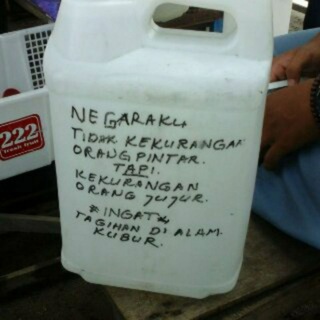 NEGARAKU
TIDAK KEKURANGAN
ORANG PINTAR.
TAPI.
KEKURANGAN
ORANG JUJUR.
*INGAT*
TAGIHAN DI ALAM
KUBUR.
222
fresh fruit